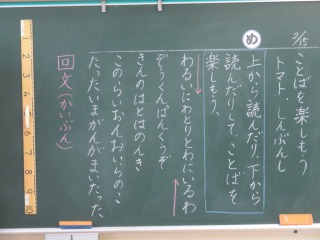 2/15
ことばを楽しもう
トマト、しんぶんし
め
上から読んだり、下から
読んだりして、ことばを
楽しもう。
わるいにわとりとわにいるわ
ぞうくんぱんくうぞ
きんのはとはのんき
このらいおんおいらのこ
たったいまがんがまいたった
回文(かいぶん)
1 2 3 4 5 6 7 8 9 10